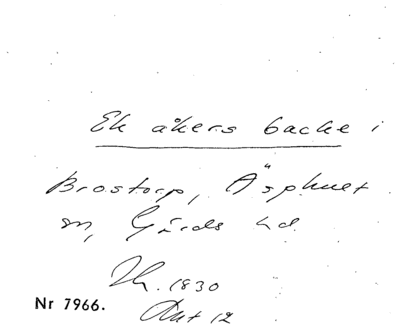 Ek åkers backe i
Brostorp, Äsphult
sn, Gärds hd.
Th. 1830
Akt 12
Nr 7966.